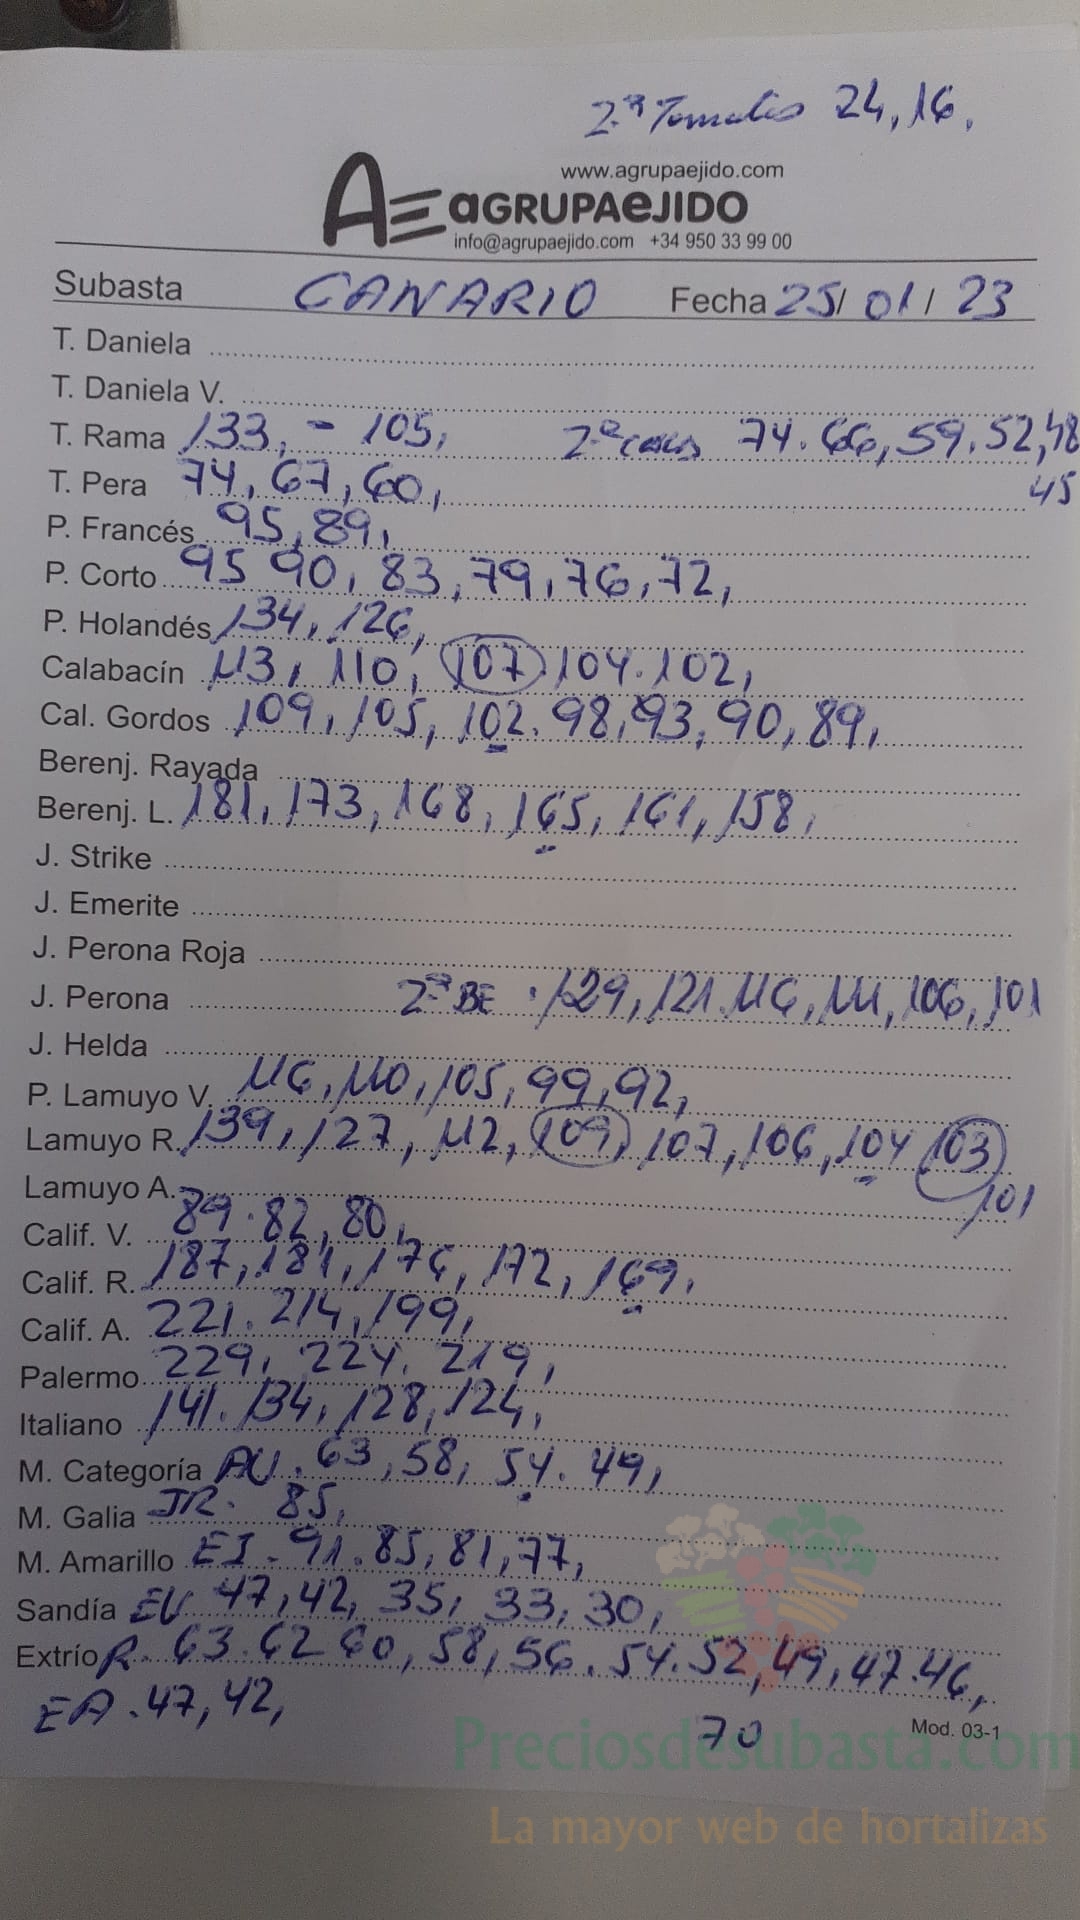 2ª Tomates 24, 16.
www.agrupaejido.com
AE AGRUPAEJIDO
info@agrupaejido.com +34 950 33 99 00
Subasta CANARIO Fecha 25/ 01/ 23
T. Daniela
T. Daniela V.
T. Rama 133, - 105, 2ª 74. 66, 59. 52, 48
45
T. Pera 74, 67, 60,
P. Francés 95, 89,
P. Corto 95 90, 83, 79, 76, 72,
P. Holandés 134, 126,
Calabacín 113, 110, 107 104. 102,
Cal. Gordos 109, 105, 102. 98, 93, 90, 89,
Berenj. Rayada
Berenj. L. 181, 173, 168, 165, 161, 158,
J. Strike
J. Emerite
J. Perona Roja
J. Perona 2ª BE . 129, 121. 116, 111, 106, 101
J. Helda
P. Lamuyo V. 116, 110, 105, 99, 92,
Lamuyo R. 139, 127, 112, 109, 107, 106, 104 103
101
Lamuyo A.
Calif. V. 89. 82, 80,
Calif. R. 187, 181, 176, 172, 169.
Calif. A. 221. 214, 199,
Palermo 229, 224. 219,
Italiano 141. 134, 128, 124,
M. Categoría AU. 63, 58, 54. 49,
M. Galia JR. 85,
M. Amarillo EJ - 91. 85, 81, 77,
Sandía EU 47, 42, 35, 33, 30,
Extrío R. 63. 62 60, 58, 56. 54. 52, 49, 47. 46,
EA. 47, 42,
70
Mod. 03-1
Preciosdesubasta.com
La mayor web de hortalizas